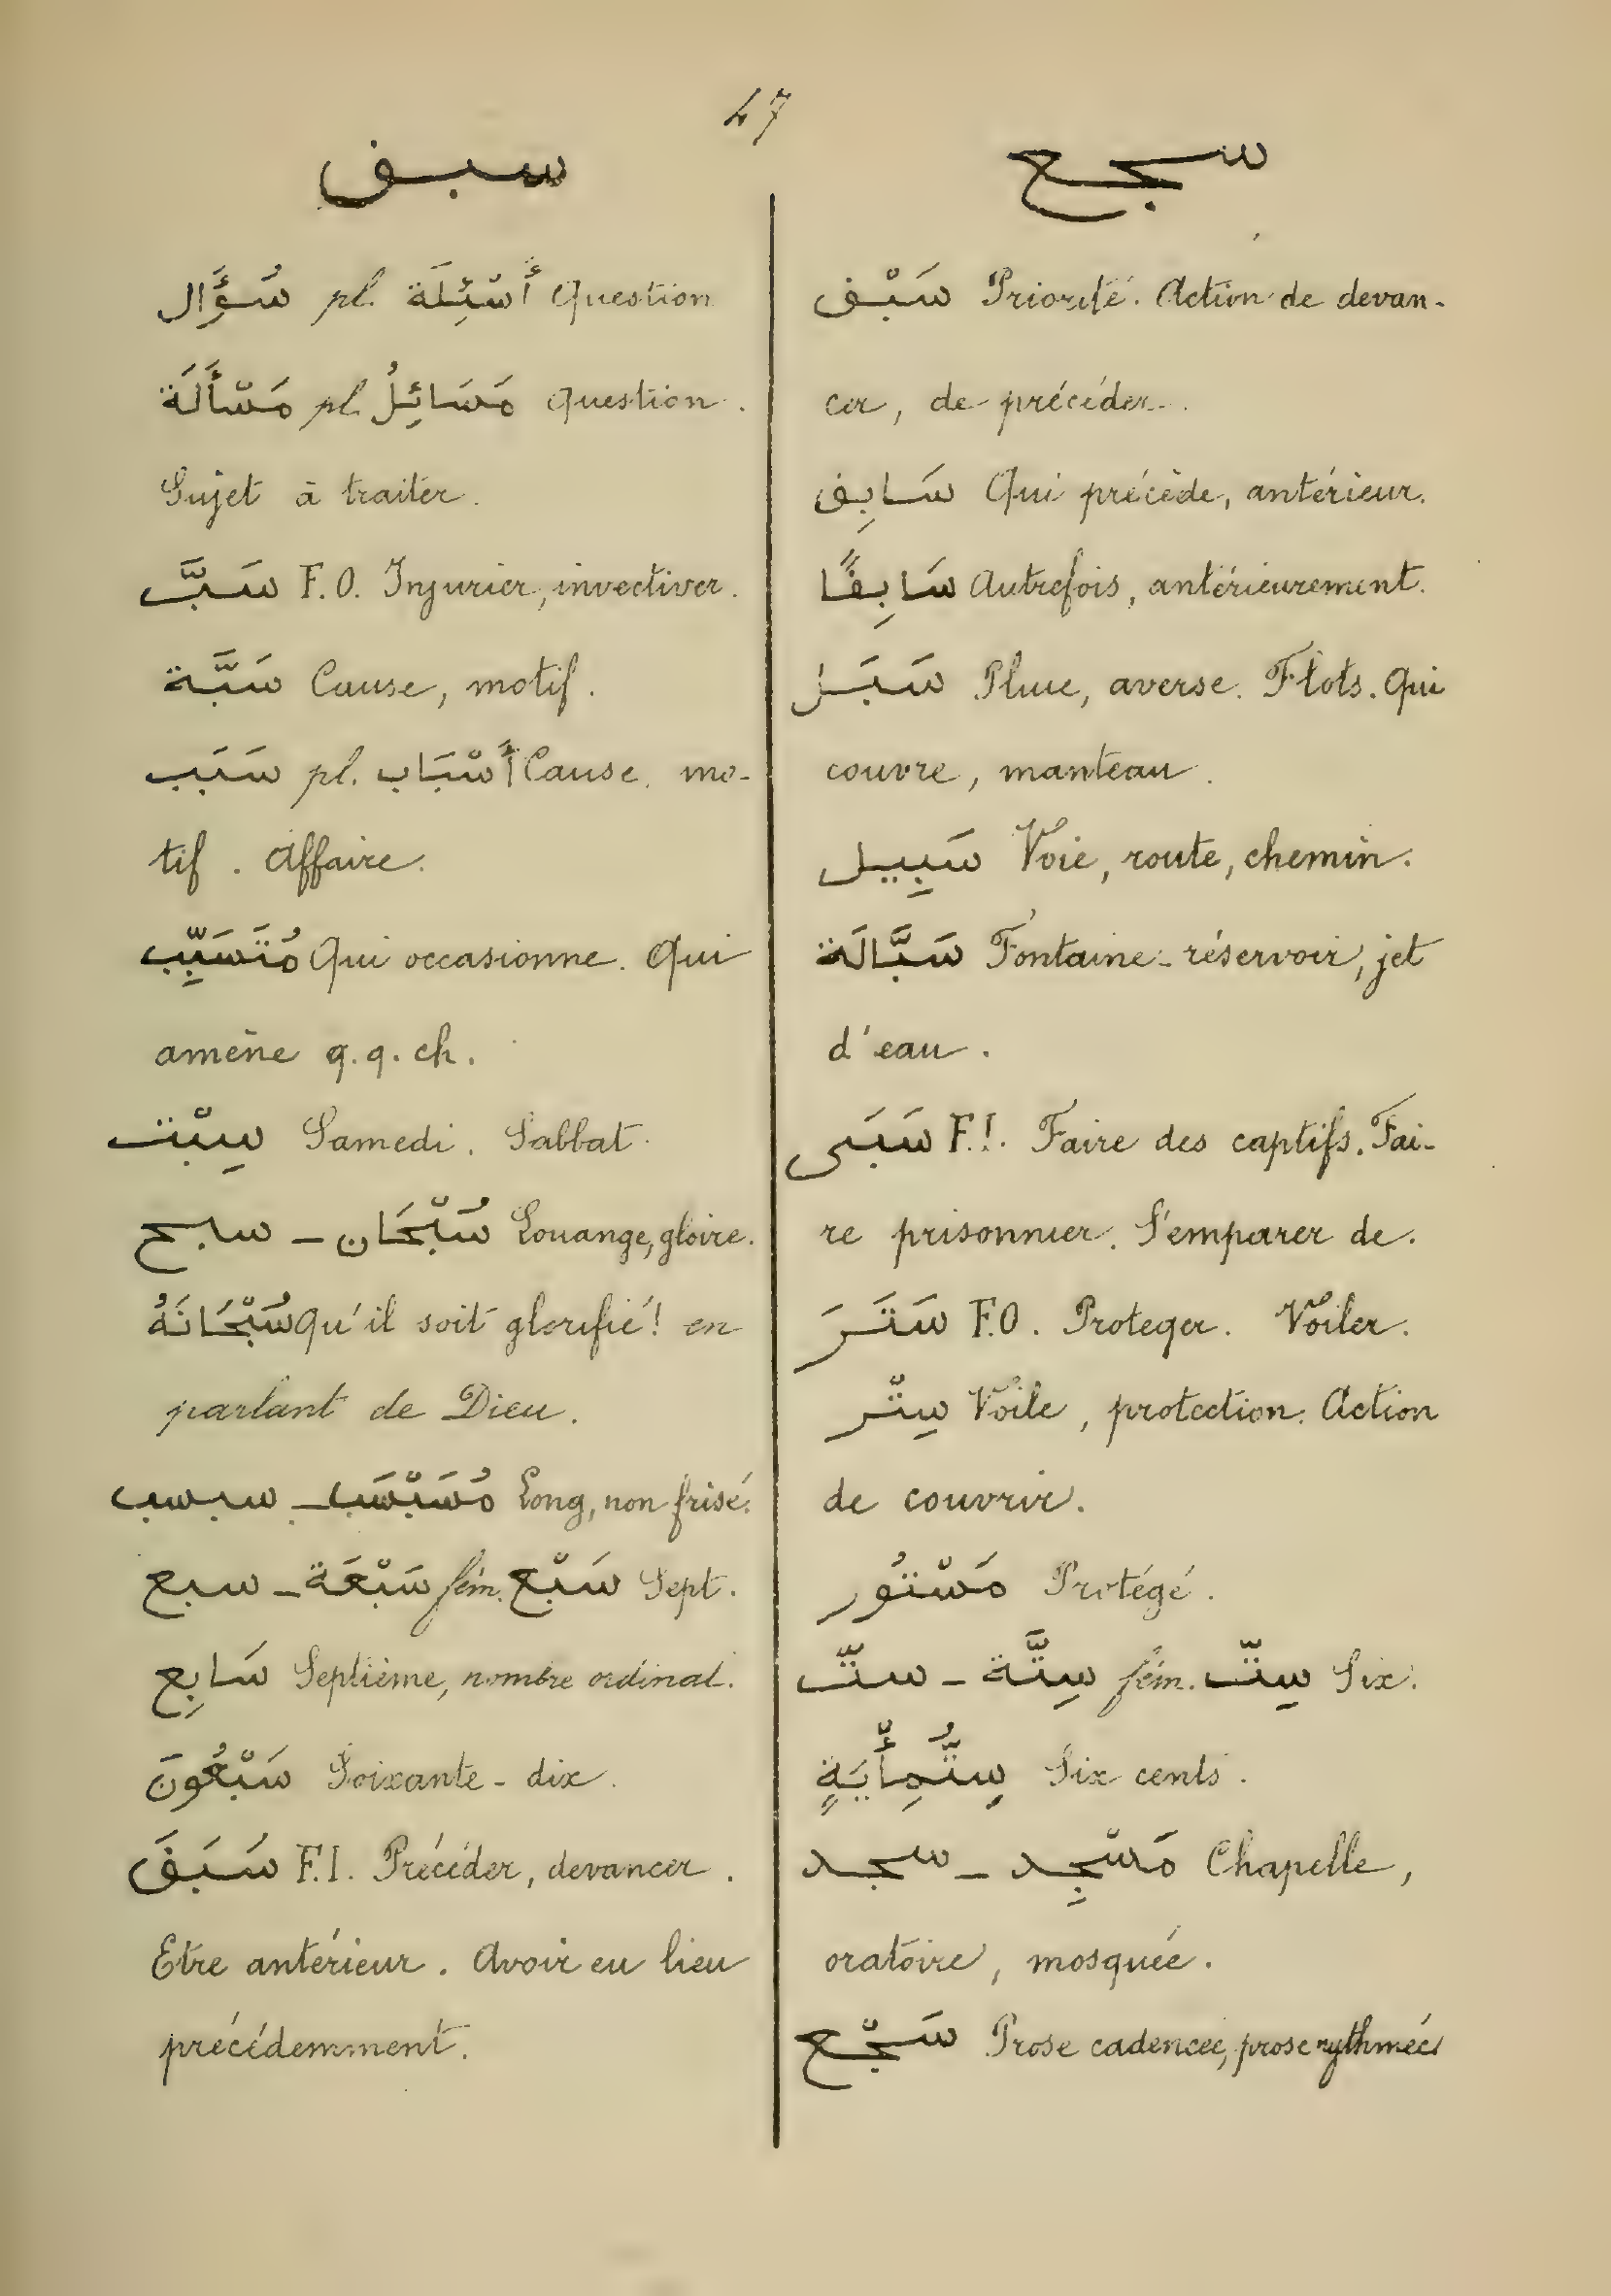 47
سبق
سجع
سُؤَال pl. أَسْئِلَة Question
مَسْأَلَة pl. مَسَائِلُ Question.
Sujet à traiter.
سَبَّ F.O. Injurier, invectiver.
سَبَّة Cause, motif.
سَبَب pl. أَسْبَاب Cause, mo-
tif. Affaire.
مُتَسَبِّب Qui occasionne. Qui
amène q.q. ch.
سِبْت Samedi. Sabbat.
سبح – سُبْحَان Louange, gloire.
سُبْحَانَهُ Qu'il soit glorifié! en
parlant de Dieu.
سبسب – مُسَبْسَب Long, non frisé.
سبع – سَبْعَة fém. سَبْع Sept.
سَابِع Septième, nombre ordinal.
سَبْعُونَ Soixante-dix.
سَبَقَ F.I. Précéder, devancer.
Etre antérieur. Avoir eu lieu
précédemment.
سَبْق Priorité. Action de devan-
cer, de précéder.
سَابِق Qui précède, antérieur.
سَابِقًا Autrefois, antérieurement.
سَبَل Pluie, averse. Flots. Qui
couvre, manteau.
سَبِيل Voie, route, chemin.
سَبَّالَة Fontaine-réservoir, jet
d'eau.
سَبَى F.I. Faire des captifs. Fai-
re prisonnier. S'emparer de.
سَتَرَ F.O. Proteger. Voiler.
سِتْر Voile, protection. Action
de couvrir.
مَسْتُور Protégé.
ستّ – سِتَّة fém. سِتّ Six.
سِتُّمِأْيَةٍ Six cents.
سجد – مَسْجِد Chapelle,
oratoire, mosquée.
سَجْع Prose cadencée, prose rythmée